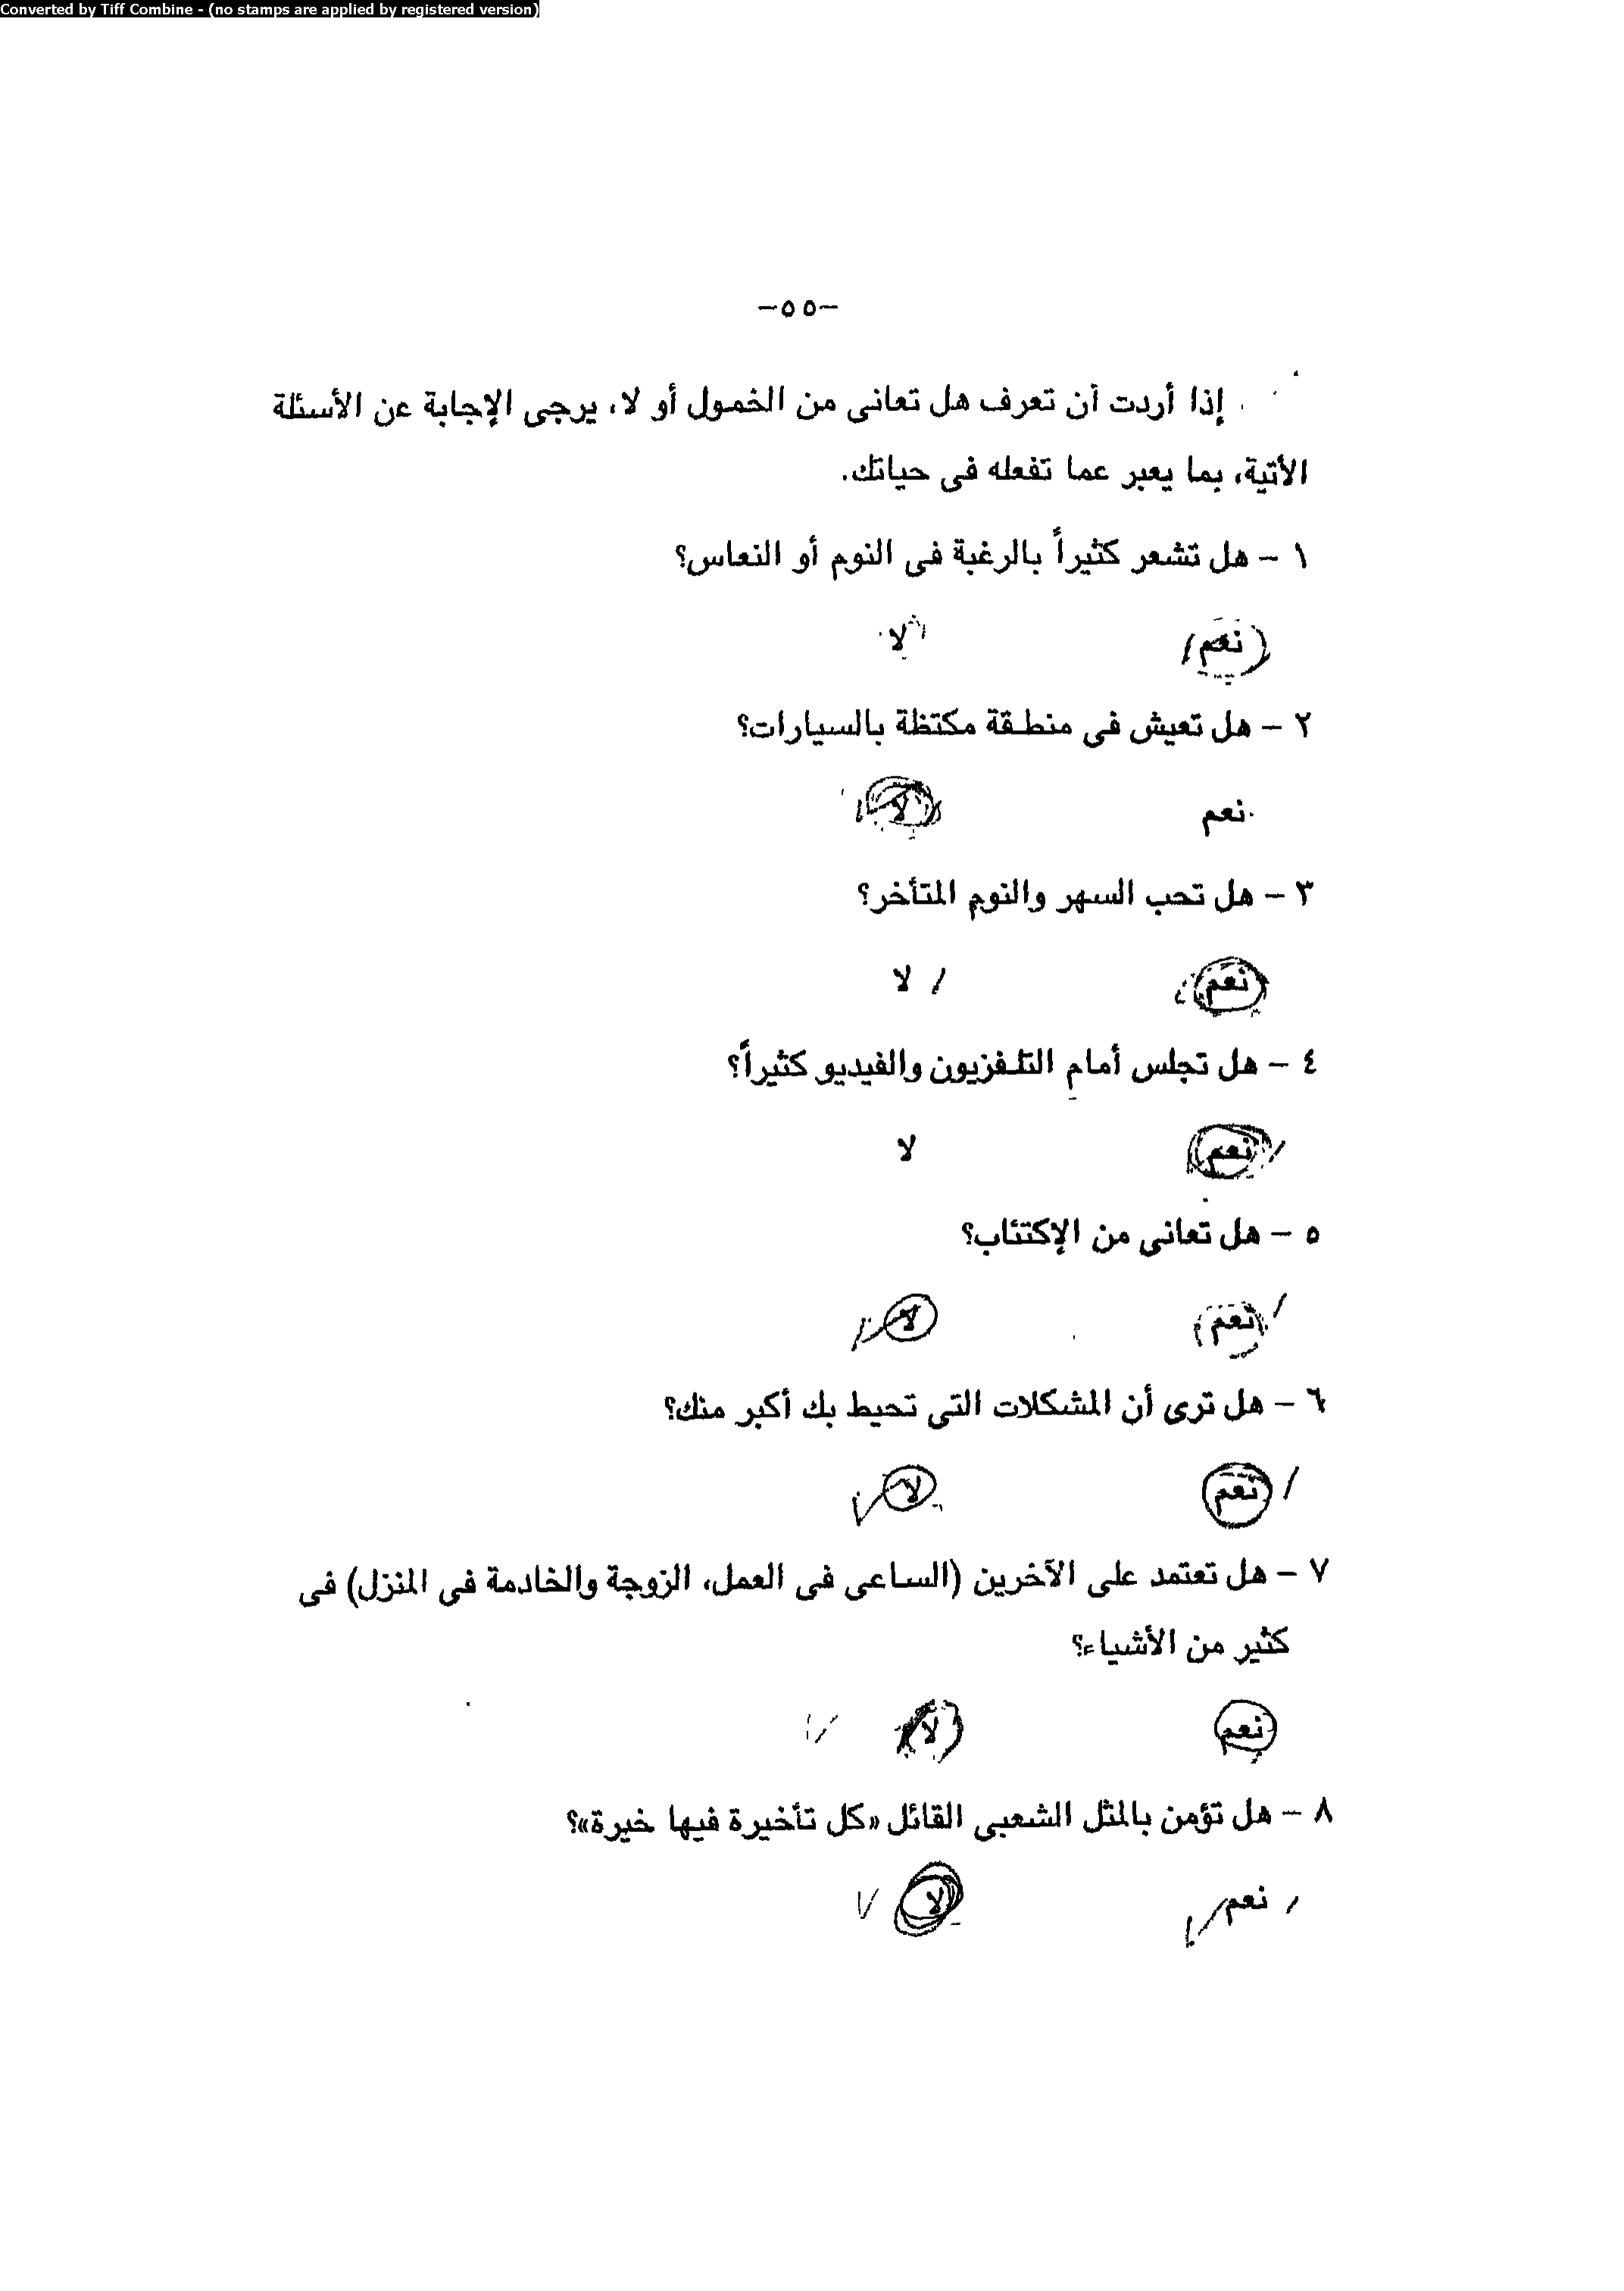 Converted by Tiff Combine - (no stamps are applied by registered version)
-٥٥-
إذا أردت أن تعرف هل تعانى من الخمول أو لا، يرجى الإجابة عن الأسئلة
الأتية، بما يعبر عما تفعله فى حياتك.
١ - هل تشعر كثيراً بالرغبة فى النوم أو النعاس؟
نعم لا
٢ - هل تعيش فى منطقة مكتظة بالسيارات؟
نعم لا
٣ - هل تحب السهر والنوم المتأخر؟
نعم لا
٤ - هل تجلس أمام التلفزيون والفيديو كثيراً؟
نعم لا
٥ - هل تعانى من الإكتئاب؟
نعم لا
٦ - هل ترى أن المشكلات التى تحيط بك أكبر منك؟
نعم لا
٧ - هل تعتمد على الآخرين (الساعى فى العمل، الزوجة والخادمة فى المنزل) فى
كثير من الأشياء؟
نعم لا
٨ - هل تؤمن بالمثل الشعبى القائل «كل تأخيرة فيها خيرة»؟
نعم لا